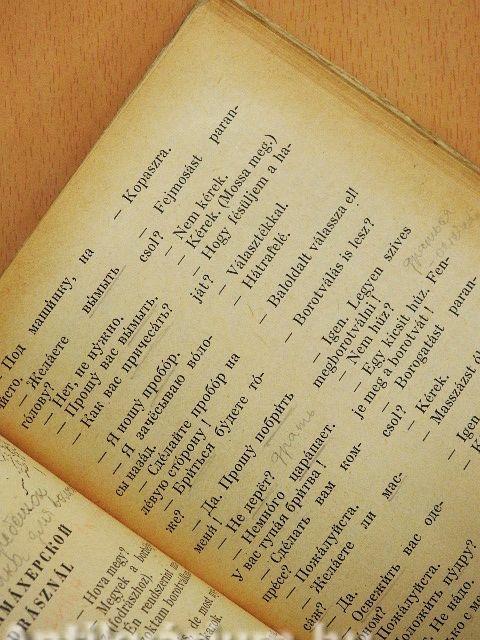 Под машинку, на
чисто.
— Желаете вымыть
голову?
— Нет, не нужно.
— Прошу вас вымыть.
— Как вас причесать?
— Я ношу пробор.
— Я зачёсываю воло-
сы назад.
— Сделайте пробор на
левую сторону!
— Бриться будете то-
же?
— Да. Прошу побрить
меня!
— Не дерёт? драть
— Немного царапает.
У вас тупая бритва!
— Сделать вам ком-
пресс?
— Пожалуйста.
— Желаете ли мас-
саж?
— Да.
Освежить вас оде-
Пожалуйста.
пудру?
Не надо.
— Kopaszra.
— Fejmosást paran-
csol?
— Nem kérek.
— Kérek. (Mossa meg.)
— Hogy fésüljem a ha-
ját?
— Választékkal.
— Hátrafelé.
— Baloldalt válassza el!
— Borotválás is lesz?
— Igen. Legyen szíves
megborotválni!
— Nem húz?
— Egy kicsit húz. Fen-
je meg a borotvát!
— Borogatást paran-
csol?
— Kérek.
— Masszázst
— Igen
МАХЕРСКОЙ
— Hova megy?
— Megyek a
En rendszerint